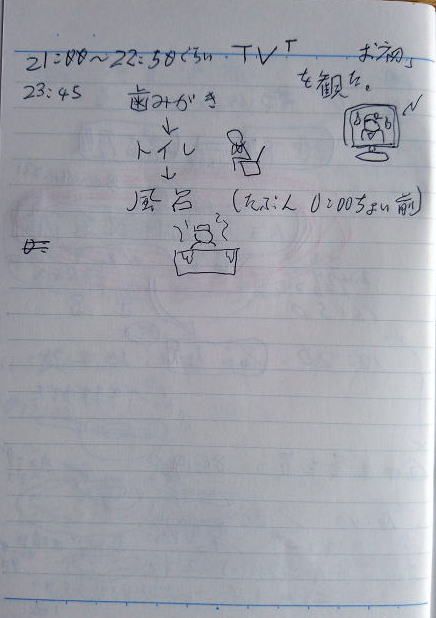 21:00〜22:50ぐらい TV「お初」
を観た。
23:45 歯みがき
↓
トイレ
↓
風呂 (たぶん 0:00ちょい前)